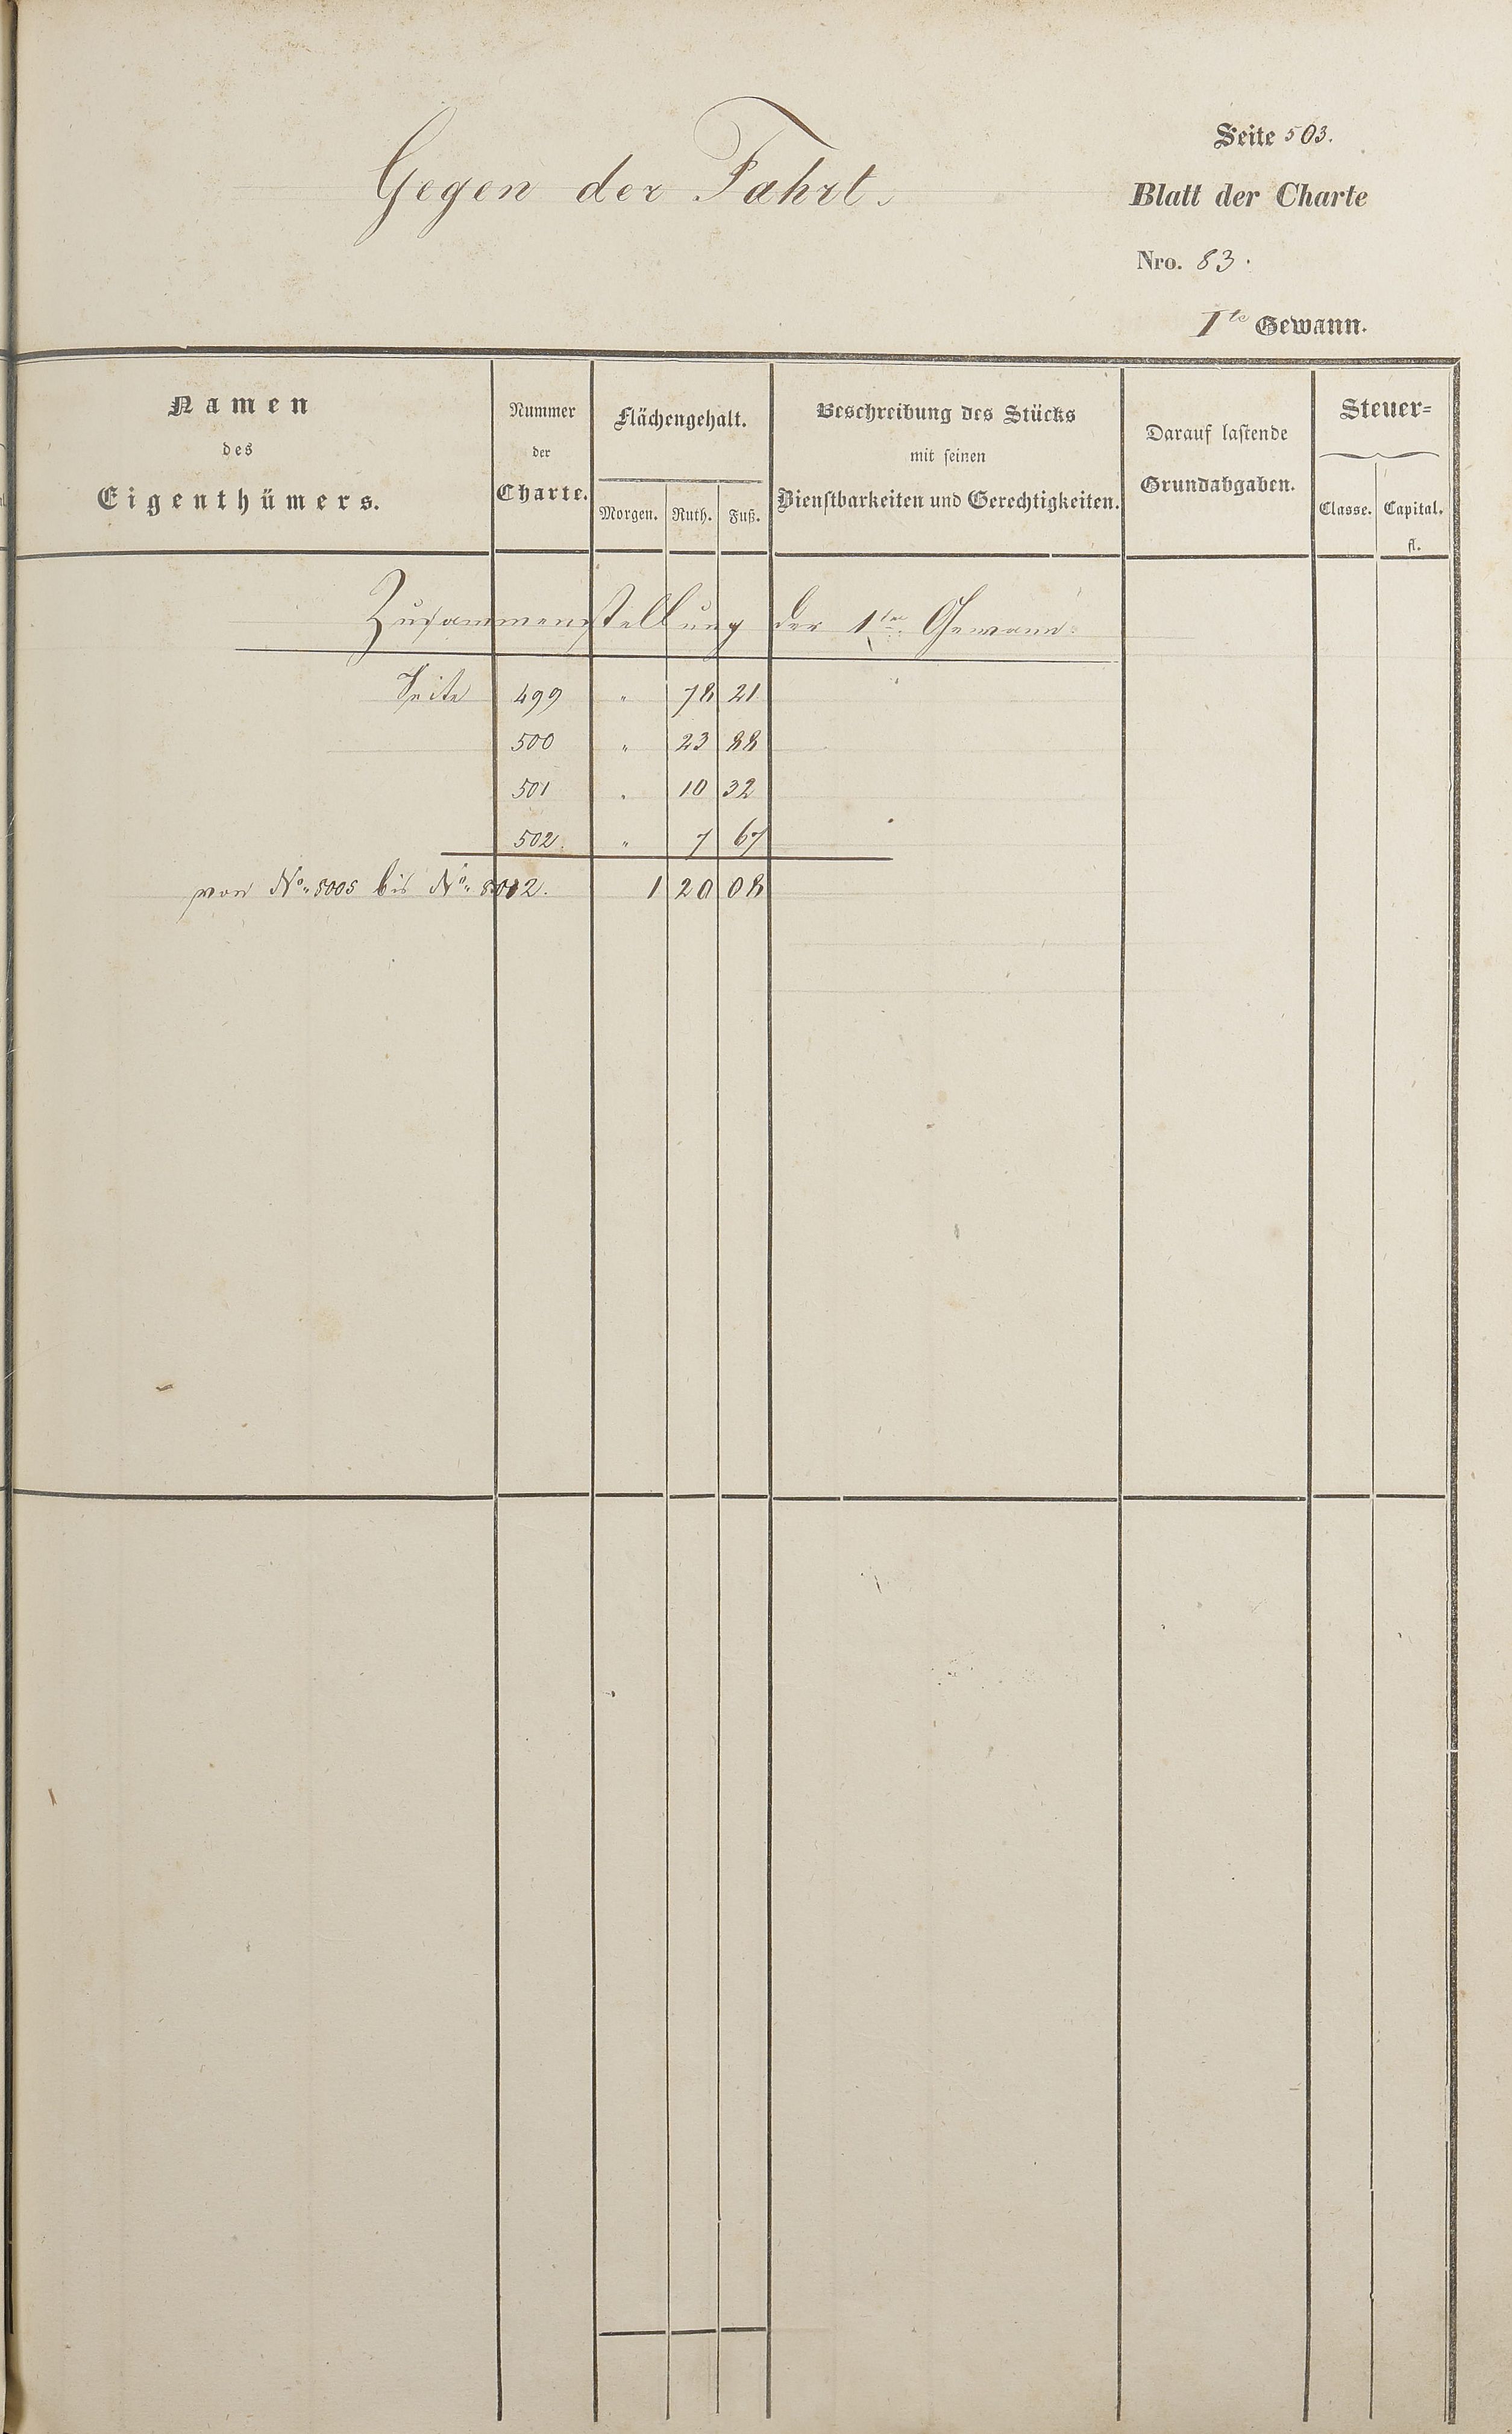 Gegen der Fahrt.
Seite 503.
Blatt der Charte
Nro. 83.
1te Gewann.
Namen
des
Eigenthümers.
Nummer
der
Charte.
Flächengehalt.
Morgen. Ruth. Fuß.
Beschreibung des Stücks
mit seinen
Dienstbarkeiten und Gerechtigkeiten.
Darauf lastende
Grundabgaben.
Steuer=
Classe. Capital.
fl.
Zusammenstellung der 1ten Gewann.
Seite 499 " 78 21
500 " 23 88
501 " 10 32
502. " 7 67
von No. 5005 bis No. 5012. 1 20 08